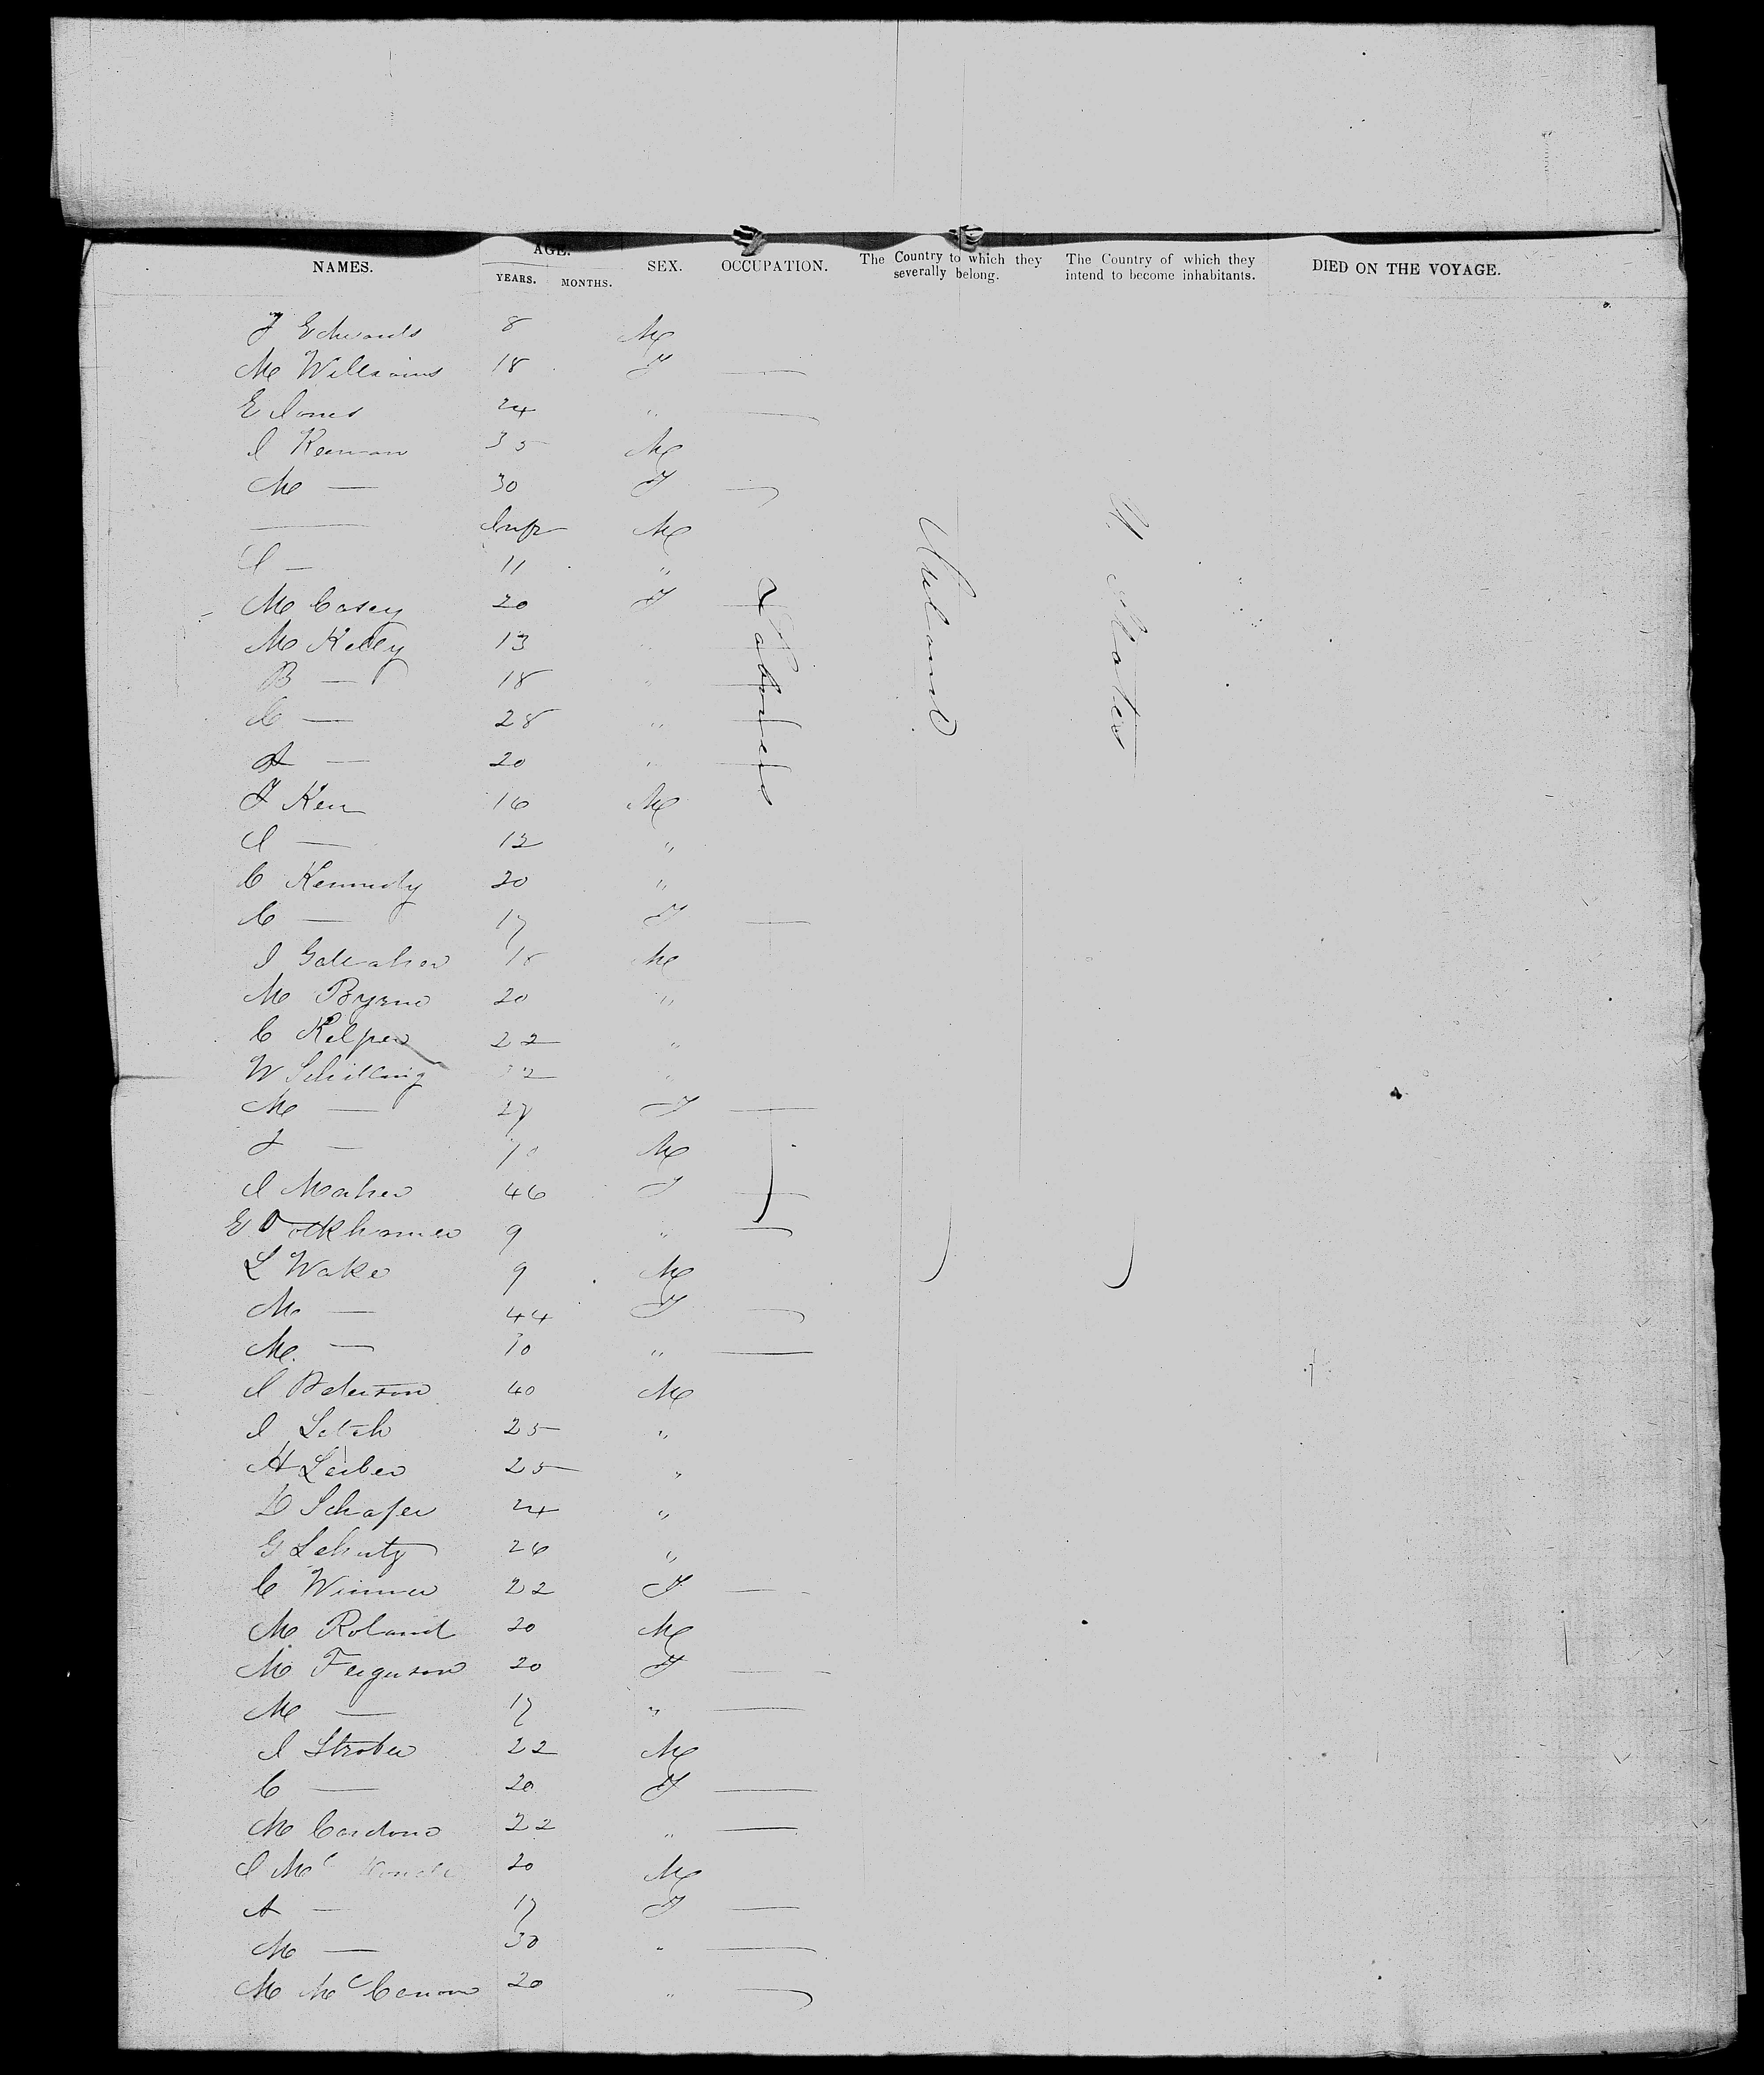 NAMES. AGE. YEARS. MONTHS. SEX. OCCUPATION. The Country to which they severally belong. The Country of which they intend to become inhabitants. DIED ON THE VOYAGE.
J Edwards 8 M
M Williams 18 F —
E Jones 24 " —
J Keenan 35 M
M — 30 F —
— Inft M
J — 11 "
M Casey 20 F —
M Kelly 13 " —
B — 18 " —
C — 28 " —
A — 20 " —
Labourers
Ireland
U. States
J Kerr 16 M
J — 12 "
C Kennedy 20 "
C — 17 F —
J Gallaher 18 M
M Byrne 20 "
C Kelper 22 "
W Schilling 32 "
M — 27 F —
J — 10 M
J Maher 46 F —
E 9 " —
L Wake 9 M
M — 44 F —
M. — 10 " —
J Peterson 40 M
J 25 "
H Leiber 25 "
D Schafer 24 "
G Schutz 26 "
C Winner 22 F —
M Roland 20 M
M Ferguson 20 F —
M — 17 " —
J Strober 22 M
C — 20 F —
M Cardono 22 " —
J Mc 20 M
A — 17 F —
M — 30 " —
M McCanon 20 " —